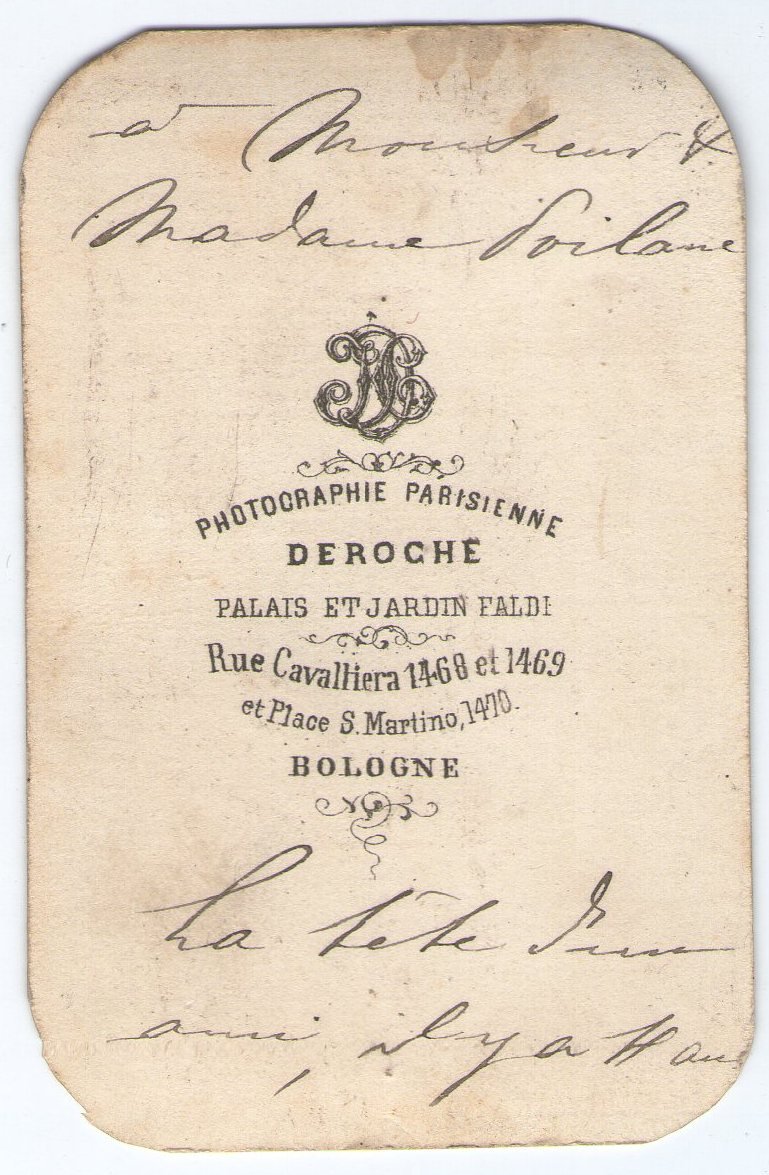 à Monsieur &
Madame Poilane
PHOTOGRAPHIE PARISIENNE
DEROCHE
PALAIS ET JARDIN FALDI
Rue Cavalliera 1468 et 1469
et Place S. Martino, 1470.
BOLOGNE
La tête d'un
ami, il y a 11 ans